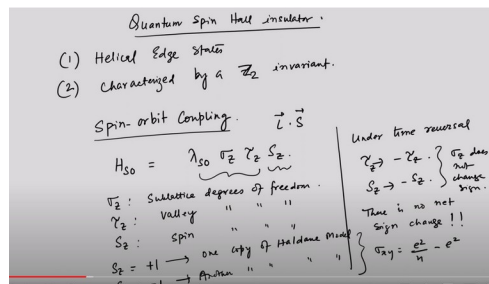 Quantum Spin Hall insulator.
(1) Helical Edge states
(2) Characterized by a ℤ₂ invariant.
Spin-orbit Coupling. L⃗·S⃗
H_SO = λ_SO σ_z τ_z S_z.
σ_z : Sublattice degrees of freedom.
τ_z : valley " " "
S_z : spin " " "
S_z = +1 → one copy of Haldane Model
→ Another " " " "
Under time reversal
τ_z → - τ_z . } σ_z does
S_z → - S_z . } not change
sign.
There is no net
sign change !!
σ_xy = e²/h - e²